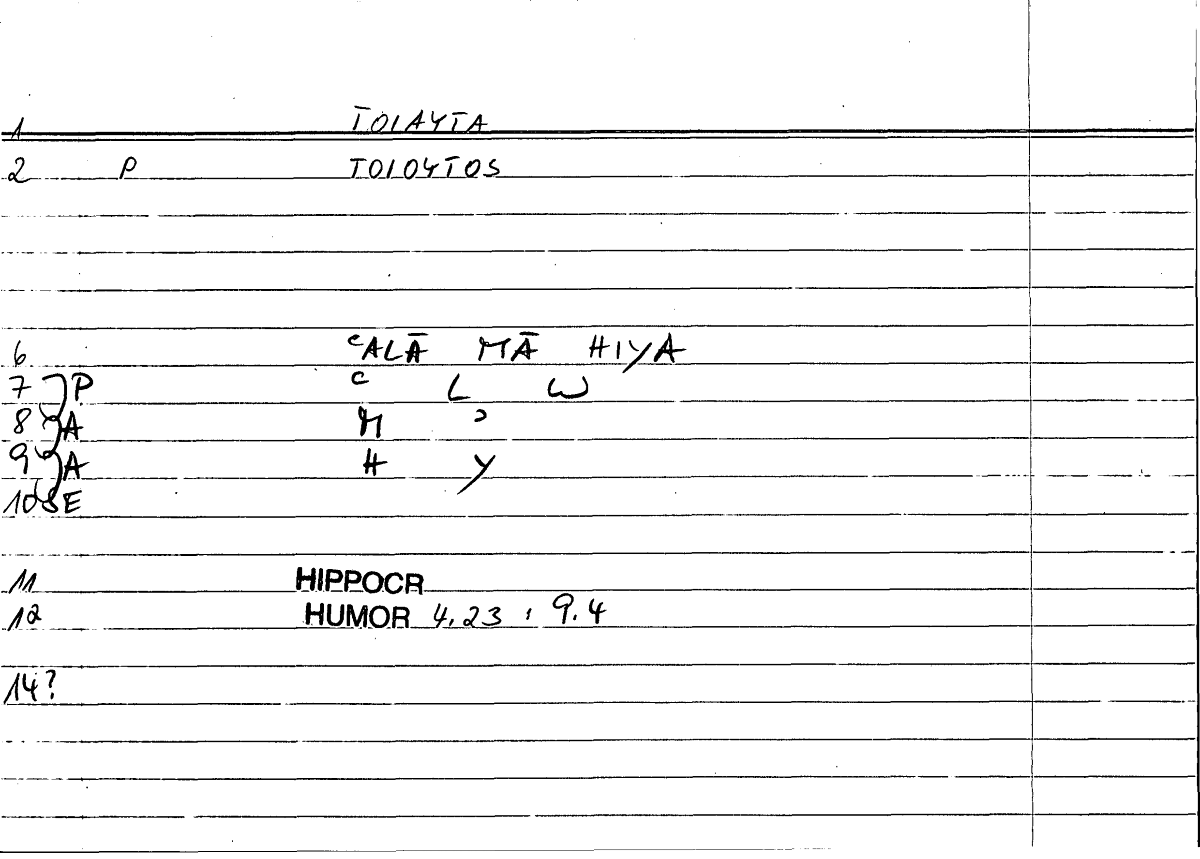 1 TOIAYTA
2 P TOIOYTOS
6 ᶜALĀ MĀ HIYA
7 P ᶜ L W
8 A M ʾ
9 A H Y
10 SE
11 HIPPOCR
12 HUMOR 4.23 , 9.4
14?